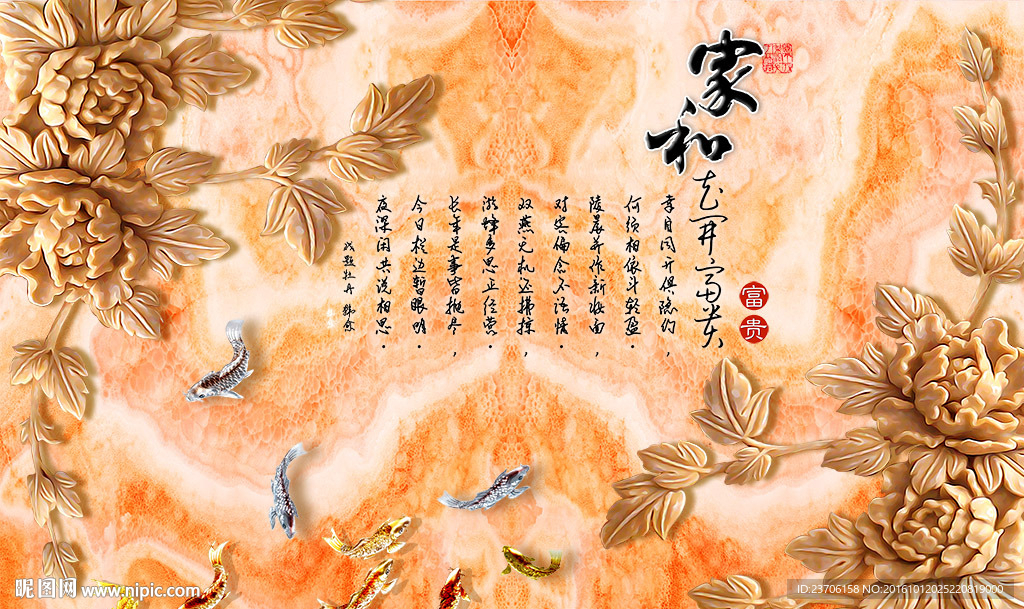 家和
花开富贵
富贵
幸自同开俱隐约，
何须相依斗轻盈。
陵晨并作新妆面，
对客偏含不语情。
双燕无机还拂掠，
游蜂多思正经营。
长年是事皆抛尽，
今日栏边暂眼明。
夜深闲共说相思。
戏题牡丹 韩愈
昵图网 www.nipic.com
ID:23706158 NO:20161012025220819000